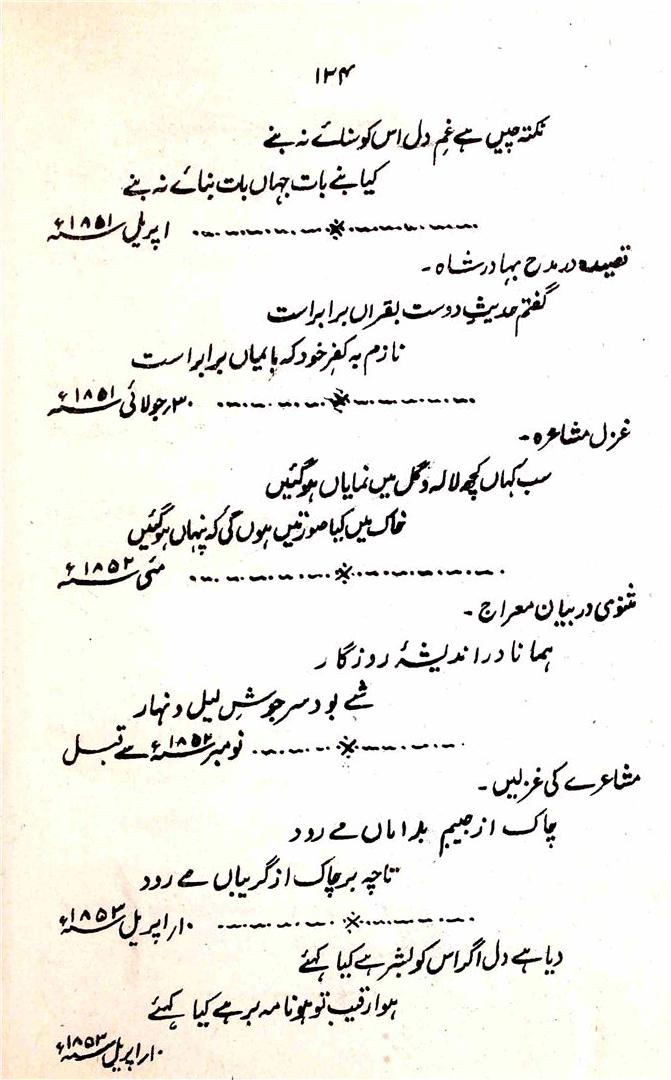 ۱۳۴
نکتہ چیں ہے غمِ دل اس کو سنائے نہ بنے
کیا بنے بات جہاں بات بنائے نہ بنے
اپریل ۱۸۵۱ء
قصیدہ در مدح بہادر شاہ۔
گفتم حدیثِ دوست بقرآں برابر است
نازم بہ کفرِ خود کہ بایماں برابر است
۳۰؍جولائی ۱۸۵۱ء
غزل مشاعرہ۔
سب کہاں کچھ لالہ و گل میں نمایاں ہوگئیں
خاک میں کیا صورتیں ہوں گی کہ پنہاں ہوگئیں
مئی ۱۸۵۲ء
مثنوی در بیان معراج۔
ہمانا در اندیشۂ روزگار
شبے بود سرجوشِ لیل و نہار
نومبر ۱۸۵۲ء سے قبل
مشاعرے کی غزلیں۔
چاک از جیبم بداماں مے رود
تاچہ بر چاک از گریباں مے رود
۱۰؍اپریل ۱۸۵۳ء
دیا ہے دل اگر اس کو بشر ہے کیا کہئے
ہوا رقیب تو ہو نامہ بر ہے کیا کہئے
۱۰؍اپریل ۱۸۵۳ء